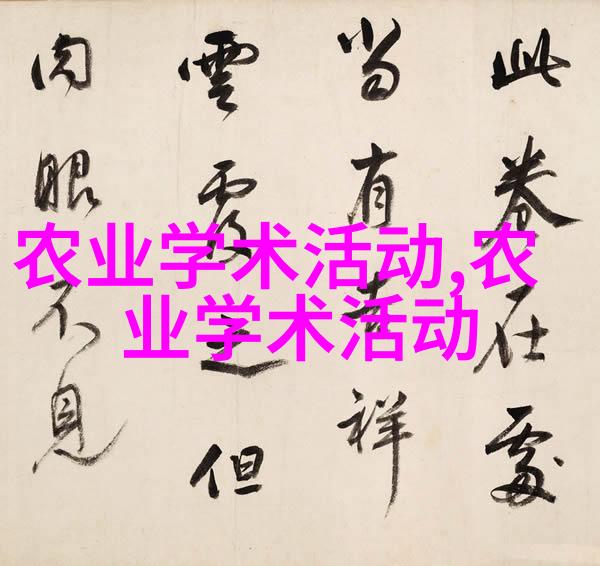 此卷在處
當有吉祥
雲覆之但
肉眼不見
农业学术活动,农
业学术活动